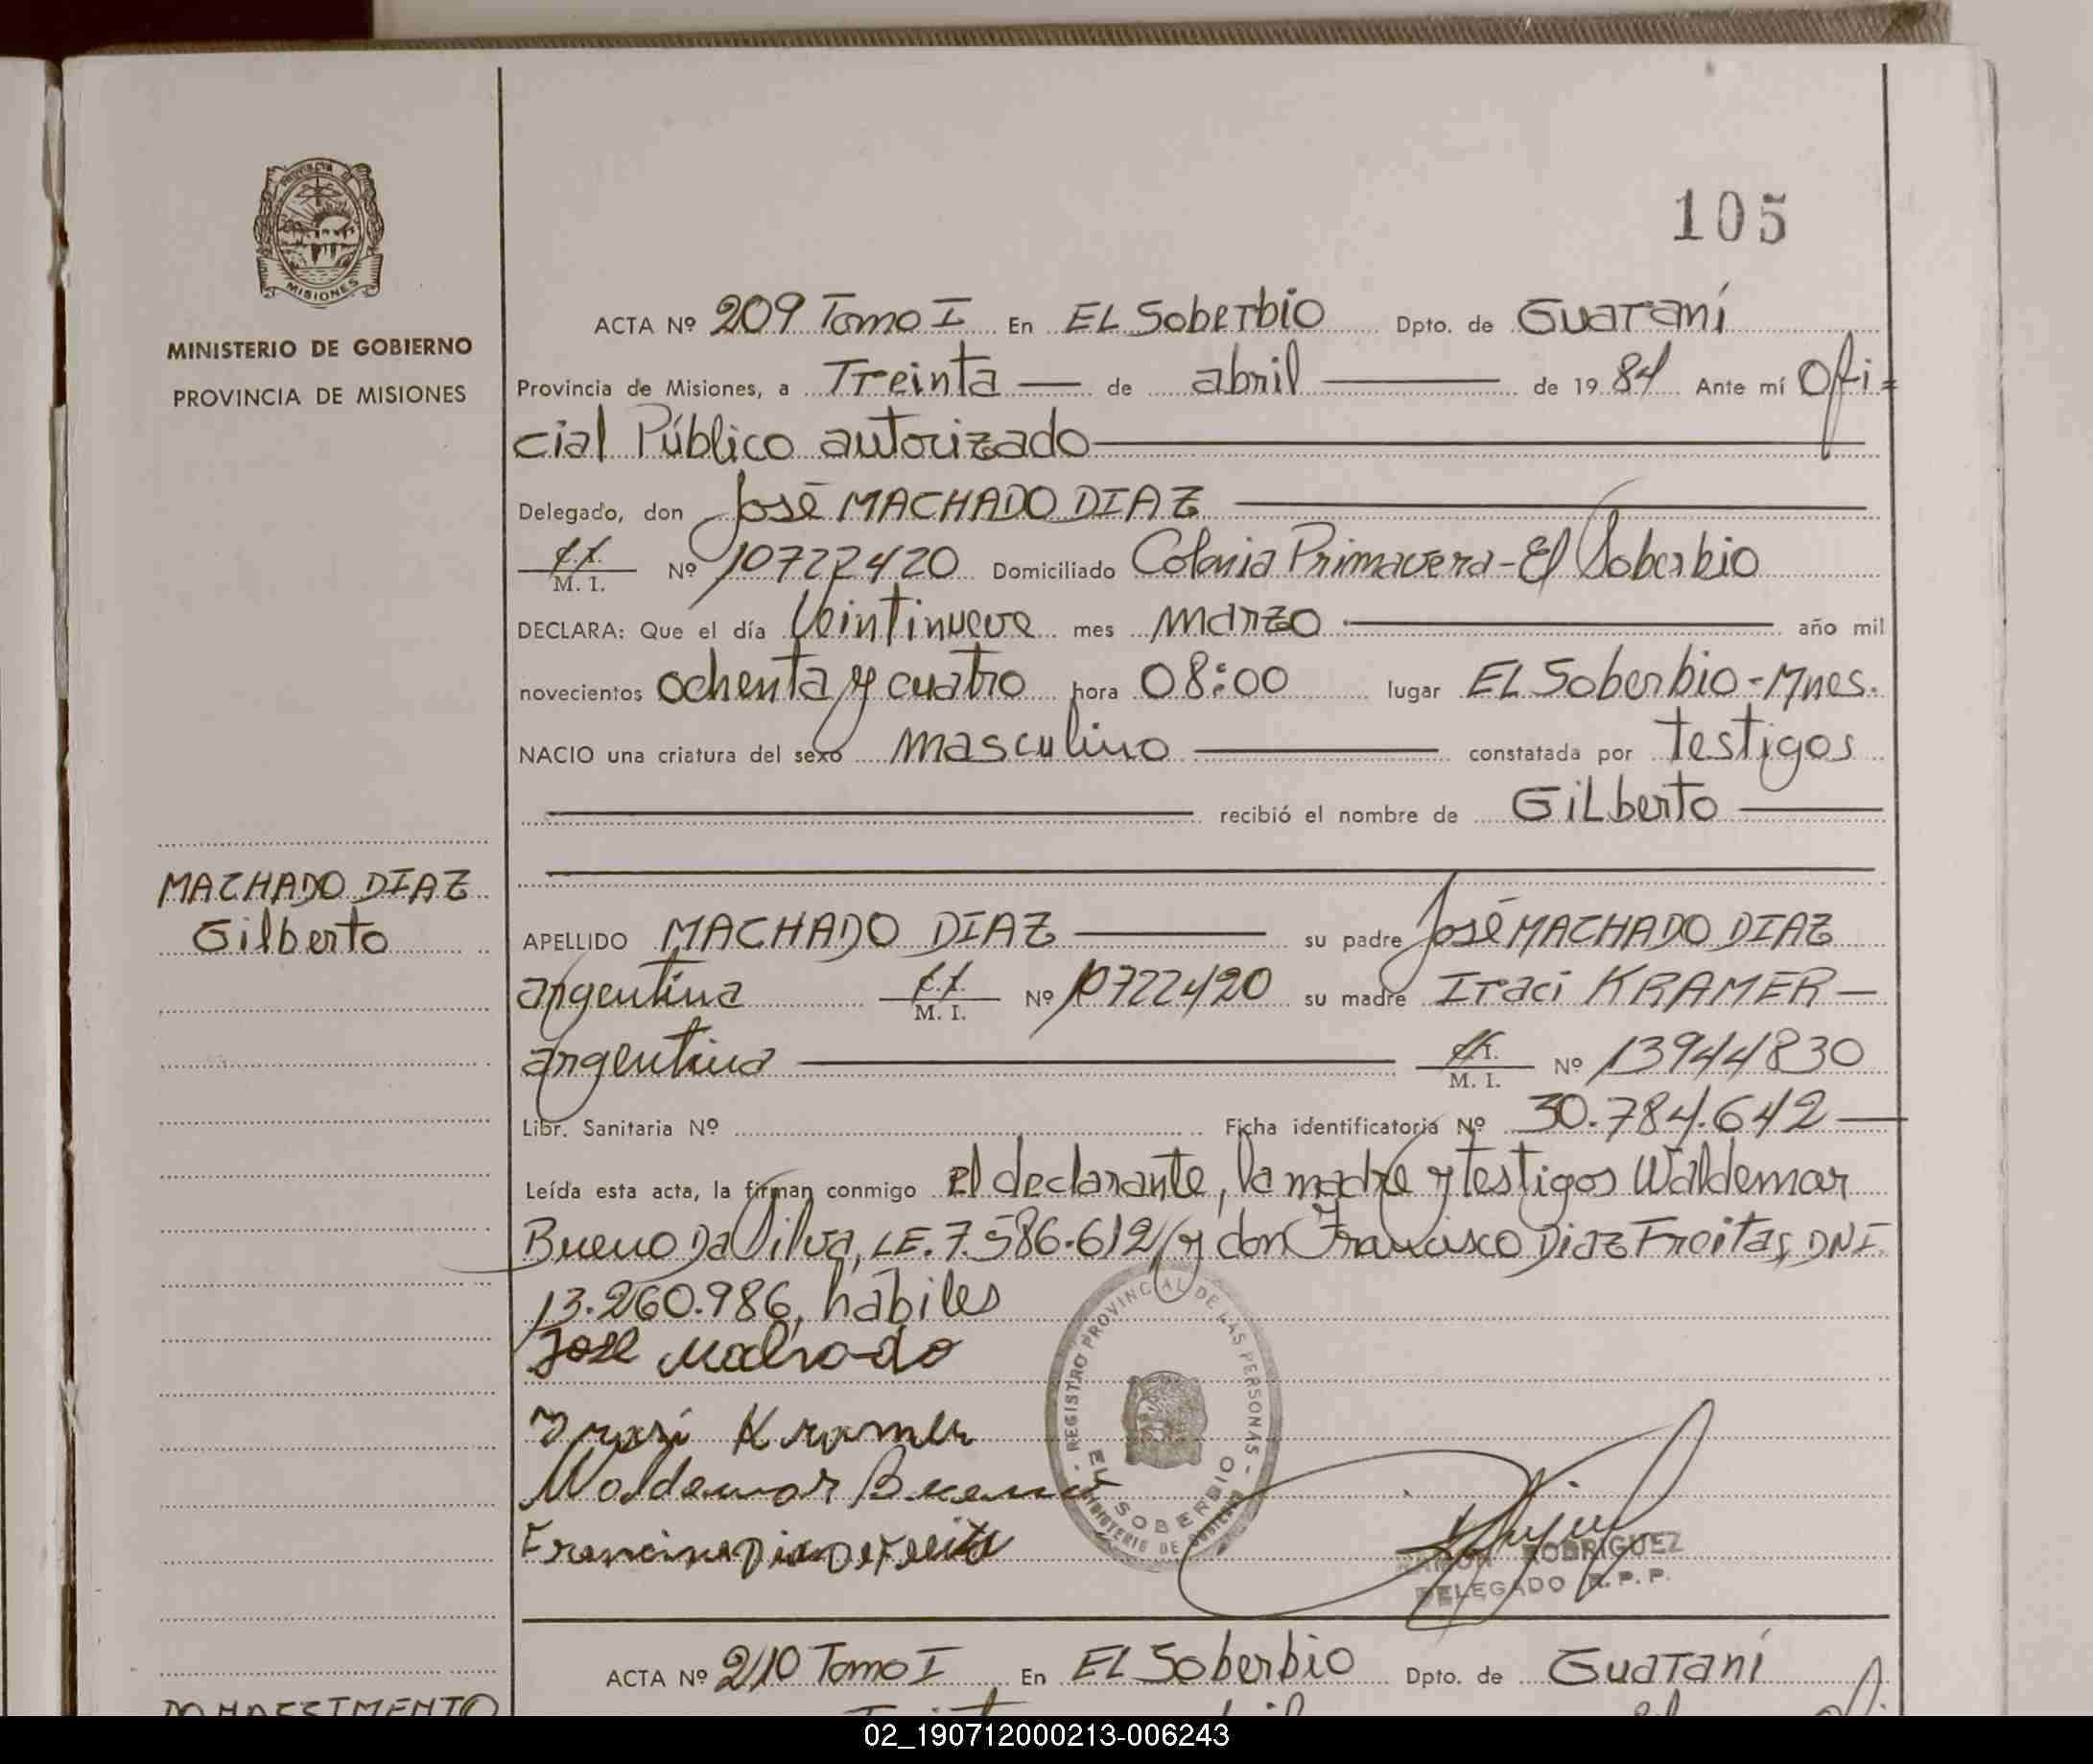 105
PROVINCIA DE
MISIONES
MINISTERIO DE GOBIERNO
PROVINCIA DE MISIONES
ACTA Nº 209 Tomo I En EL Soberbio Dpto. de Guaraní
Provincia de Misiones, a Treinta de abril de 1984 Ante mí Ofi=
cial Público autorizado
Delegado, don José MACHADO DIAZ
C.I. M. I. Nº 10722420 Domiciliado Colonia Primavera-El Soberbio
DECLARA: Que el día Veintinueve mes marzo año mil
novecientos ochenta y cuatro hora 08:00 lugar EL Soberbio-Mnes.
NACIO una criatura del sexo masculino constatada por testigos
recibió el nombre de GiLberto
MACHADO DIAZ
Gilberto
APELLIDO MACHADO DIAZ su padre José MACHADO DIAZ
argentina C.I. M. I. Nº 10722420 su madre Iraci KRAMER
argentina C.I. M. I. Nº 13944830
Libr. Sanitaria Nº Ficha identificatoria Nº 30.784.642
Leída esta acta, la firman conmigo el declarante, la madre y testigos Waldemar
Bueno Da Silva, LE. 7.586.612// y don Francisco Diaz Freitas, DNI.
13.260.986, hábiles
Jose Machado
Irasi Kramer
Waldemar Bueno
REGISTRO PROVINCIAL DE LAS PERSONAS
EL SOBERBIO
MINISTERIO DE GOBIERNO
RAMON RODRIGUEZ
DELEGADO R.P.P.
ACTA Nº 210 Tomo I En EL Soberbio Dpto. de Guaraní
02_190712000213-006243